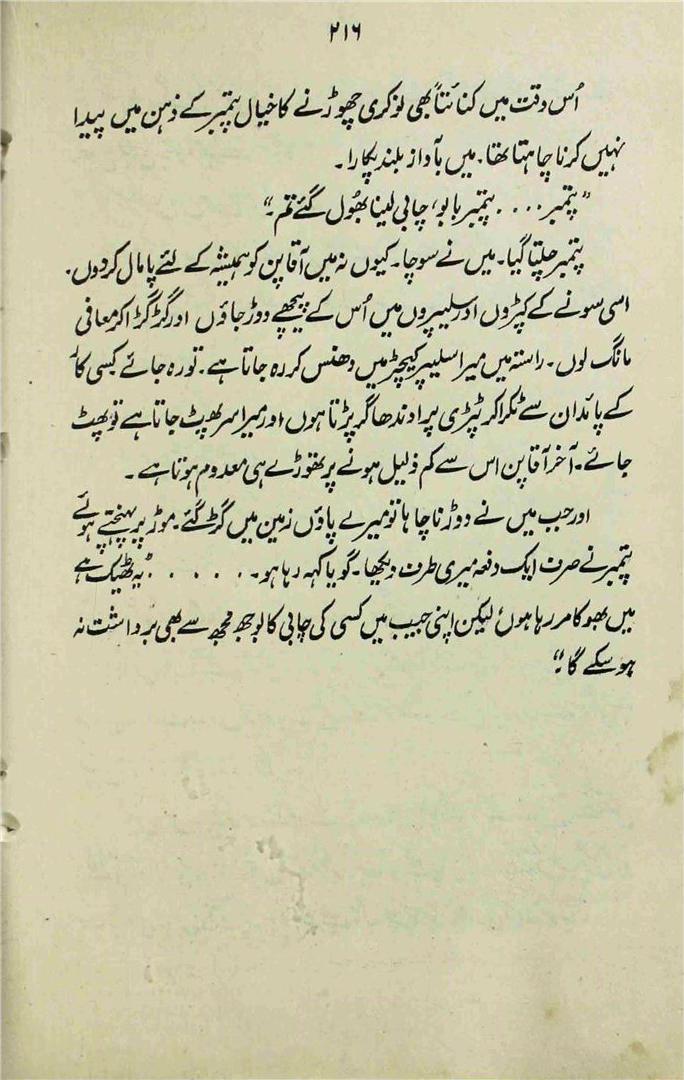 ۲۱۶
اُس وقت میں کنائتاً بھی نوکری چھوڑنے کا خیال پتمبر کے ذہن میں پیدا
نہیں کرنا چاہتا تھا۔ میں بآواز بلند پکارا۔
"پتمبر .... پتمبر بابو، چابی لینا بھُول گئے تم۔"
پتمبر چلتا گیا۔ میں نے سوچا۔ کیوں نہ میں آقا پن کو ہمیشہ کے لئے پامال کر دوں۔
اسی سونے کے کپڑوں اور سلیپروں میں اُس کے پیچھے دوڑ جاؤں اور گڑگڑا کر معافی
مانگ لوں۔ راستہ میں میرا سلیپر کیچڑ میں دھنس کر رہ جاتا ہے۔ تو رہ جائے کسی کار
کے پائدان سے ٹکرا کر پٹڑی پر اوندھا گر پڑتا ہوں اور میرا سر پھٹ جاتا ہے تو پھٹ
جائے۔ آخر آقا پن اس سے کم ذلیل ہونے پر تھوڑے ہی معدوم ہوتا ہے۔
اور جب میں نے دوڑنا چاہا تو میرے پاؤں زمین میں گڑ گئے۔ موڑ پر پہنچتے ہوئے
پتمبر نے صرف ایک دفعہ میری طرف دیکھا۔ گویا کہہ رہا ہو۔ ..... "یہ ٹھیک ہے
میں بھوکا مر رہا ہوں لیکن اپنی جیب میں کسی کی چابی کا بوجھ مجھ سے بھی برداشت نہ
ہو سکے گا۔"